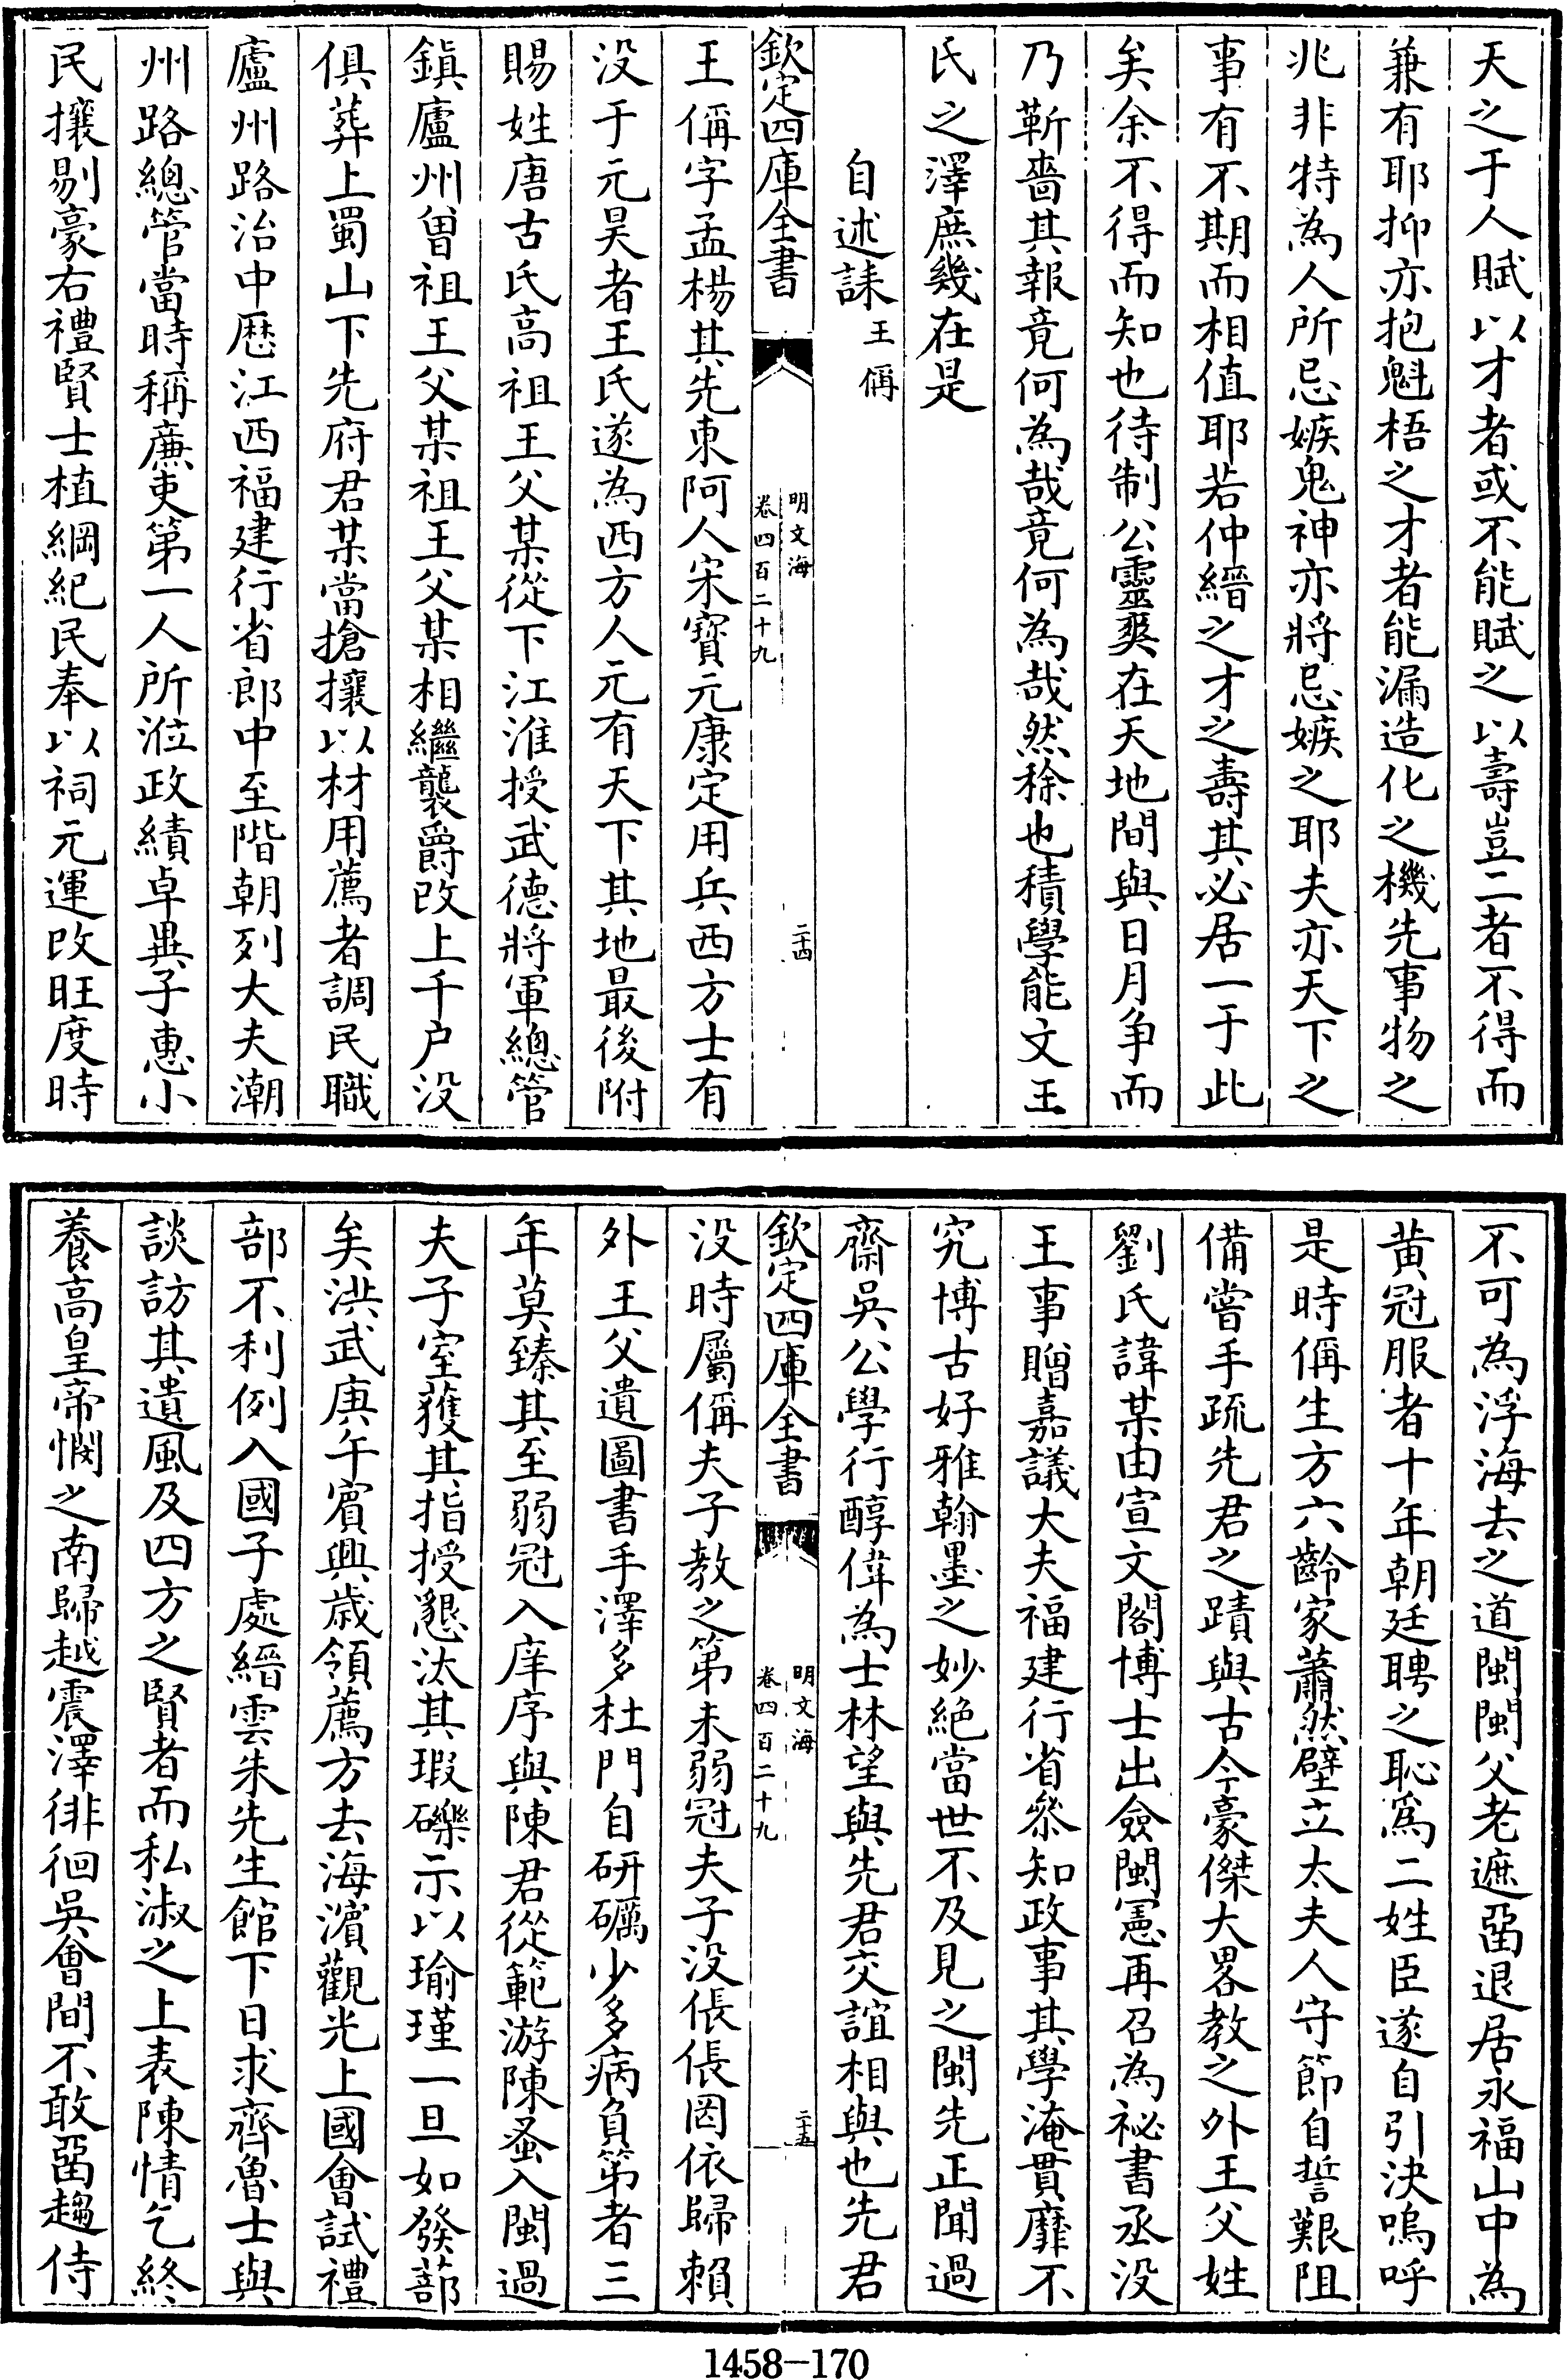 天之于人賦以才者或不能賦之以壽豈二者不得而
兼有耶抑亦抱魁梧之才者能漏造化之機先事物之
兆非特為人所忌嫉鬼神亦將忌嫉之耶夫亦天下之
事有不期而相值耶若仲縉之才之壽其必居一于此
矣余不得而知也待制公靈爽在天地間與日月争而
乃靳嗇其報竟何為哉竟何為哉然稌也積學能文王
氏之澤庶幾在是
自述誄王偁
欽定四庫全書
明文海
卷四百二十九
二十四
王偁字孟楊其先東阿人宋寳元康定用兵西方士有
没于元昊者王氏遂為西方人元有天下其地最後附
賜姓唐古氏高祖王父某從下江淮授武德將軍總管
鎮廬州曽祖王父某祖王父某相繼襲爵改上千户没
俱葬上蜀山下先府君某當搶攘以材用薦者調民職
廬州路治中歴江西福建行省郎中至階朝列大夫潮
州路總管當時稱廉吏第一人所涖政績卓異子惠小
民攘剔豪右禮賢士植綱紀民奉以祠元運改旺度時
不可為浮海去之道閩閩父老遮留退居永福山中為
黄冠服者十年朝廷聘之恥為二姓臣遂自引决嗚呼
是時偁生方六齡家蕭然壁立太夫人守節自誓艱阻
備嘗手疏先君之蹟與古今豪傑大畧教之外王父姓
劉氏諱某由宣文閣博士出僉閩憲再召為祕書丞没
王事贈嘉議大夫福建行省叅知政事其學淹貫靡不
究博古好雅翰墨之妙絶當世不及見之閩先正聞過
齋吳公學行醇偉為士林望與先君交誼相與也先君
欽定四庫全書
明文海
卷四百二十九
二十五
没時屬偁夫子教之第未弱冠夫子没倀倀罔依歸賴
外王父遺圖書手澤多杜門自研礪少多病負第者三
年莫臻其至弱冠入庠序與陳君從範游陳蚤入閩過
夫子室獲其指授懇汰其瑕礫示以瑜瑾一旦如發蔀
矣洪武庚午賓興歲領薦方去海濵觀光上國會試禮
部不利例入國子處縉雲朱先生館下日求齊魯士與
談訪其遺風及四方之賢者而私淑之上表陳情乞終
養高皇帝憫之南歸越震澤徘徊吳會間不敢留趨侍
1458-170